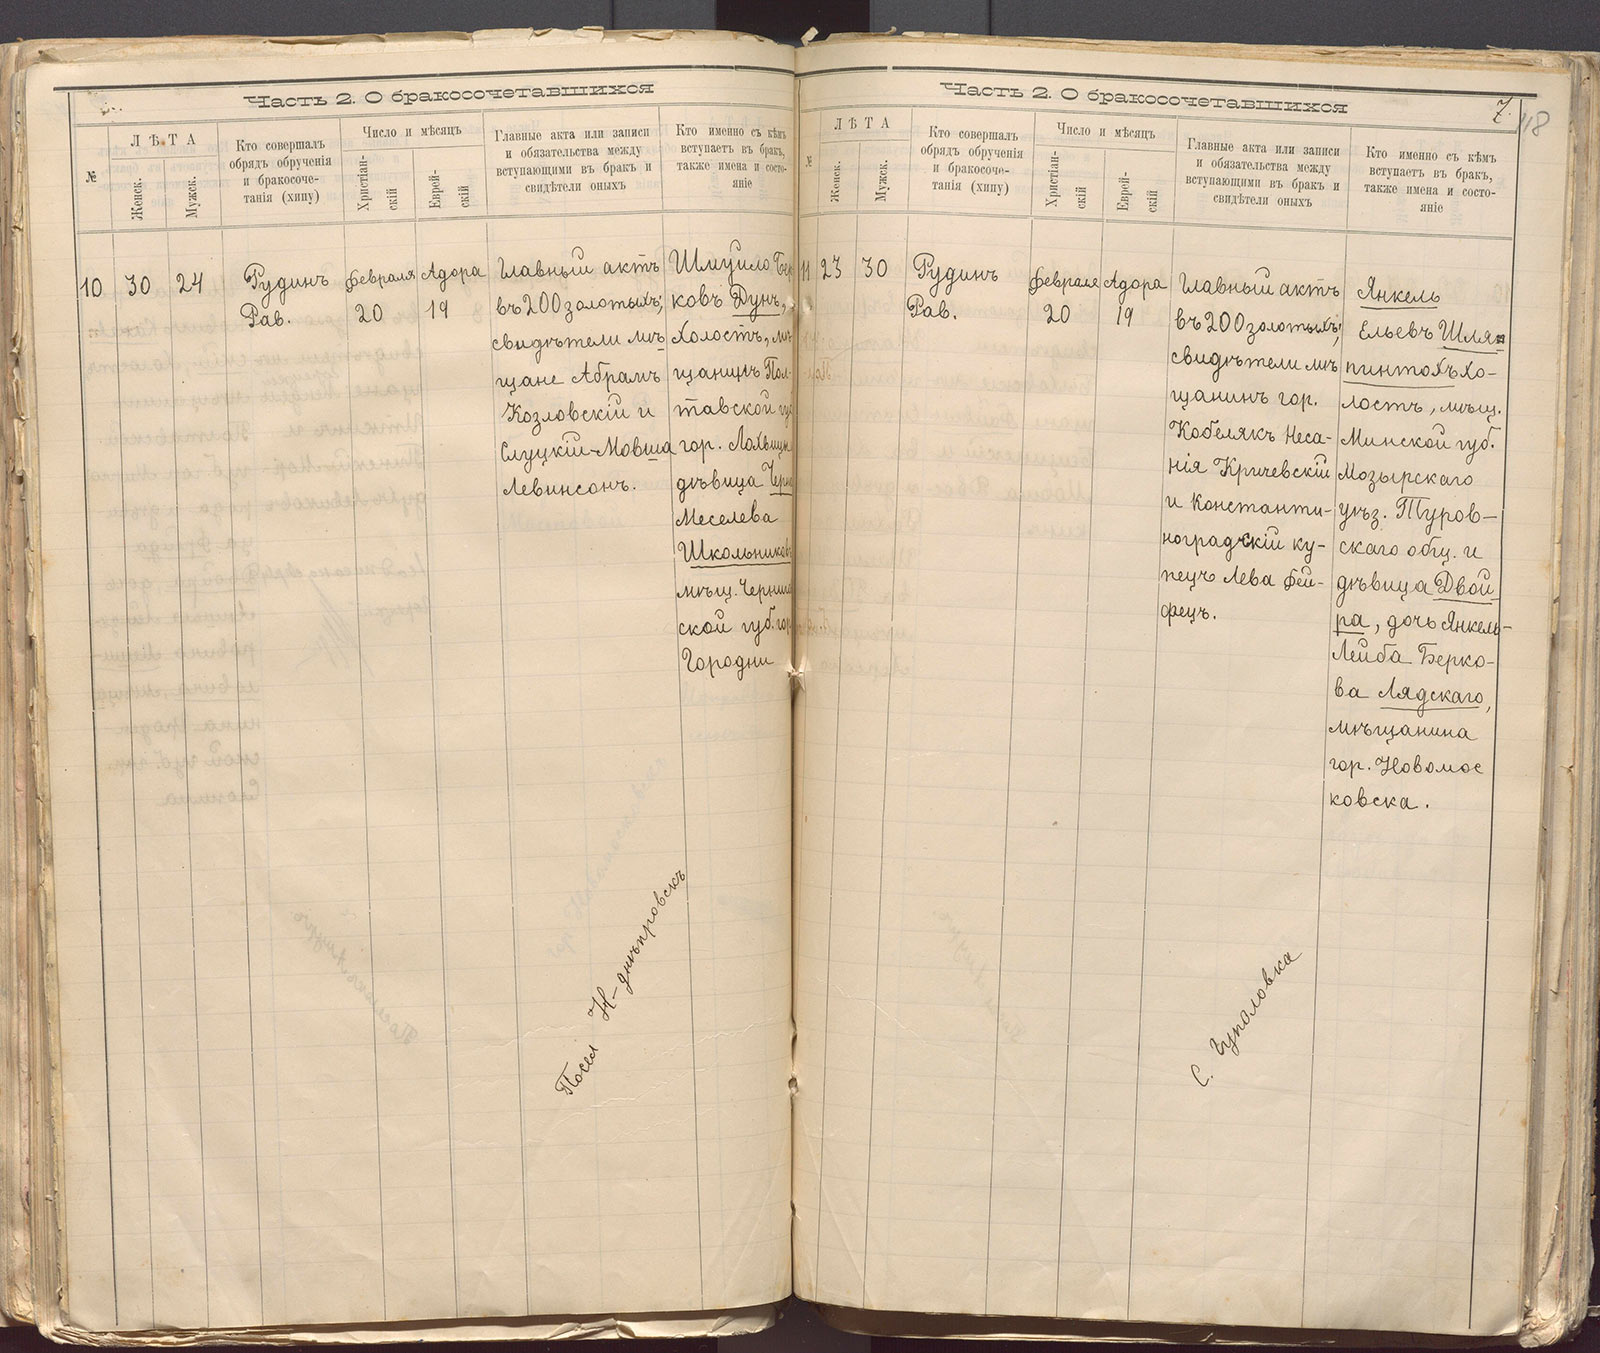 Часть 2. О бракосочетавшихся
№
ЛѢТА
Женск.
Мужск.
Кто совершалъ
обрядъ обрученія
и бракосоче-
танія (хипу)
Число и мѣсяцъ
Христіан-
скій
Еврей-
скій
Главные акта или записи
и обязательства между
вступающими въ бракъ и
свидѣтели оныхъ
Кто именно съ кѣмъ
вступаетъ въ бракъ,
также имена и состо-
яніе
10
30
24
Рудинъ
Рав.
Февраля
20
Адора
19
Главный актъ
въ 200 золотыхъ;
свидѣтели мѣ-
щане Абрамъ
Козловскій и
Слуцкій-Мовша
Левинсонъ.
Шмуйло Бер
ковъ Дунъ,
холостъ, мѣ
щанинъ Пол-
тавской губ
гор. Лохвицы
дѣвица Черна
Меселева
Школьникова
мѣщ. Чернигов
ской губ. гор
Городни
Посел Н-днѣпровскъ
Часть 2. О бракосочетавшихся
7.
118
№
ЛѢТА
Женск.
Мужск.
Кто совершалъ
обрядъ обрученія
и бракосоче-
танія (хипу)
Число и мѣсяцъ
Христіан-
скій
Еврей-
скій
Главные акта или записи
и обязательства между
вступающими въ бракъ и
свидѣтели оныхъ
Кто именно съ кѣмъ
вступаетъ въ бракъ,
также имена и состо-
яніе
11
23
30
Рудинъ
Рав.
Февраля
20
Адора
19
Главный актъ
въ 200 золотыхъ;
свидѣтели мѣ
щанинъ гор.
Кобелякъ Неса-
нія Кричевскій
и Константи-
ноградскій ку-
пецъ Лева Фей-
фецъ.
Янкель
Ельевъ Шля-
пинтохъ хо-
лостъ, мѣщ.
Минской губ.
Мозырскаго
уѣз. Туров-
скаго общ. и
дѣвица Двой-
ра, дочь Янкель-
Лейба Берко-
ва Лядскаго,
мѣщанина
гор. Новомос
ковска.
С. Чупаловка